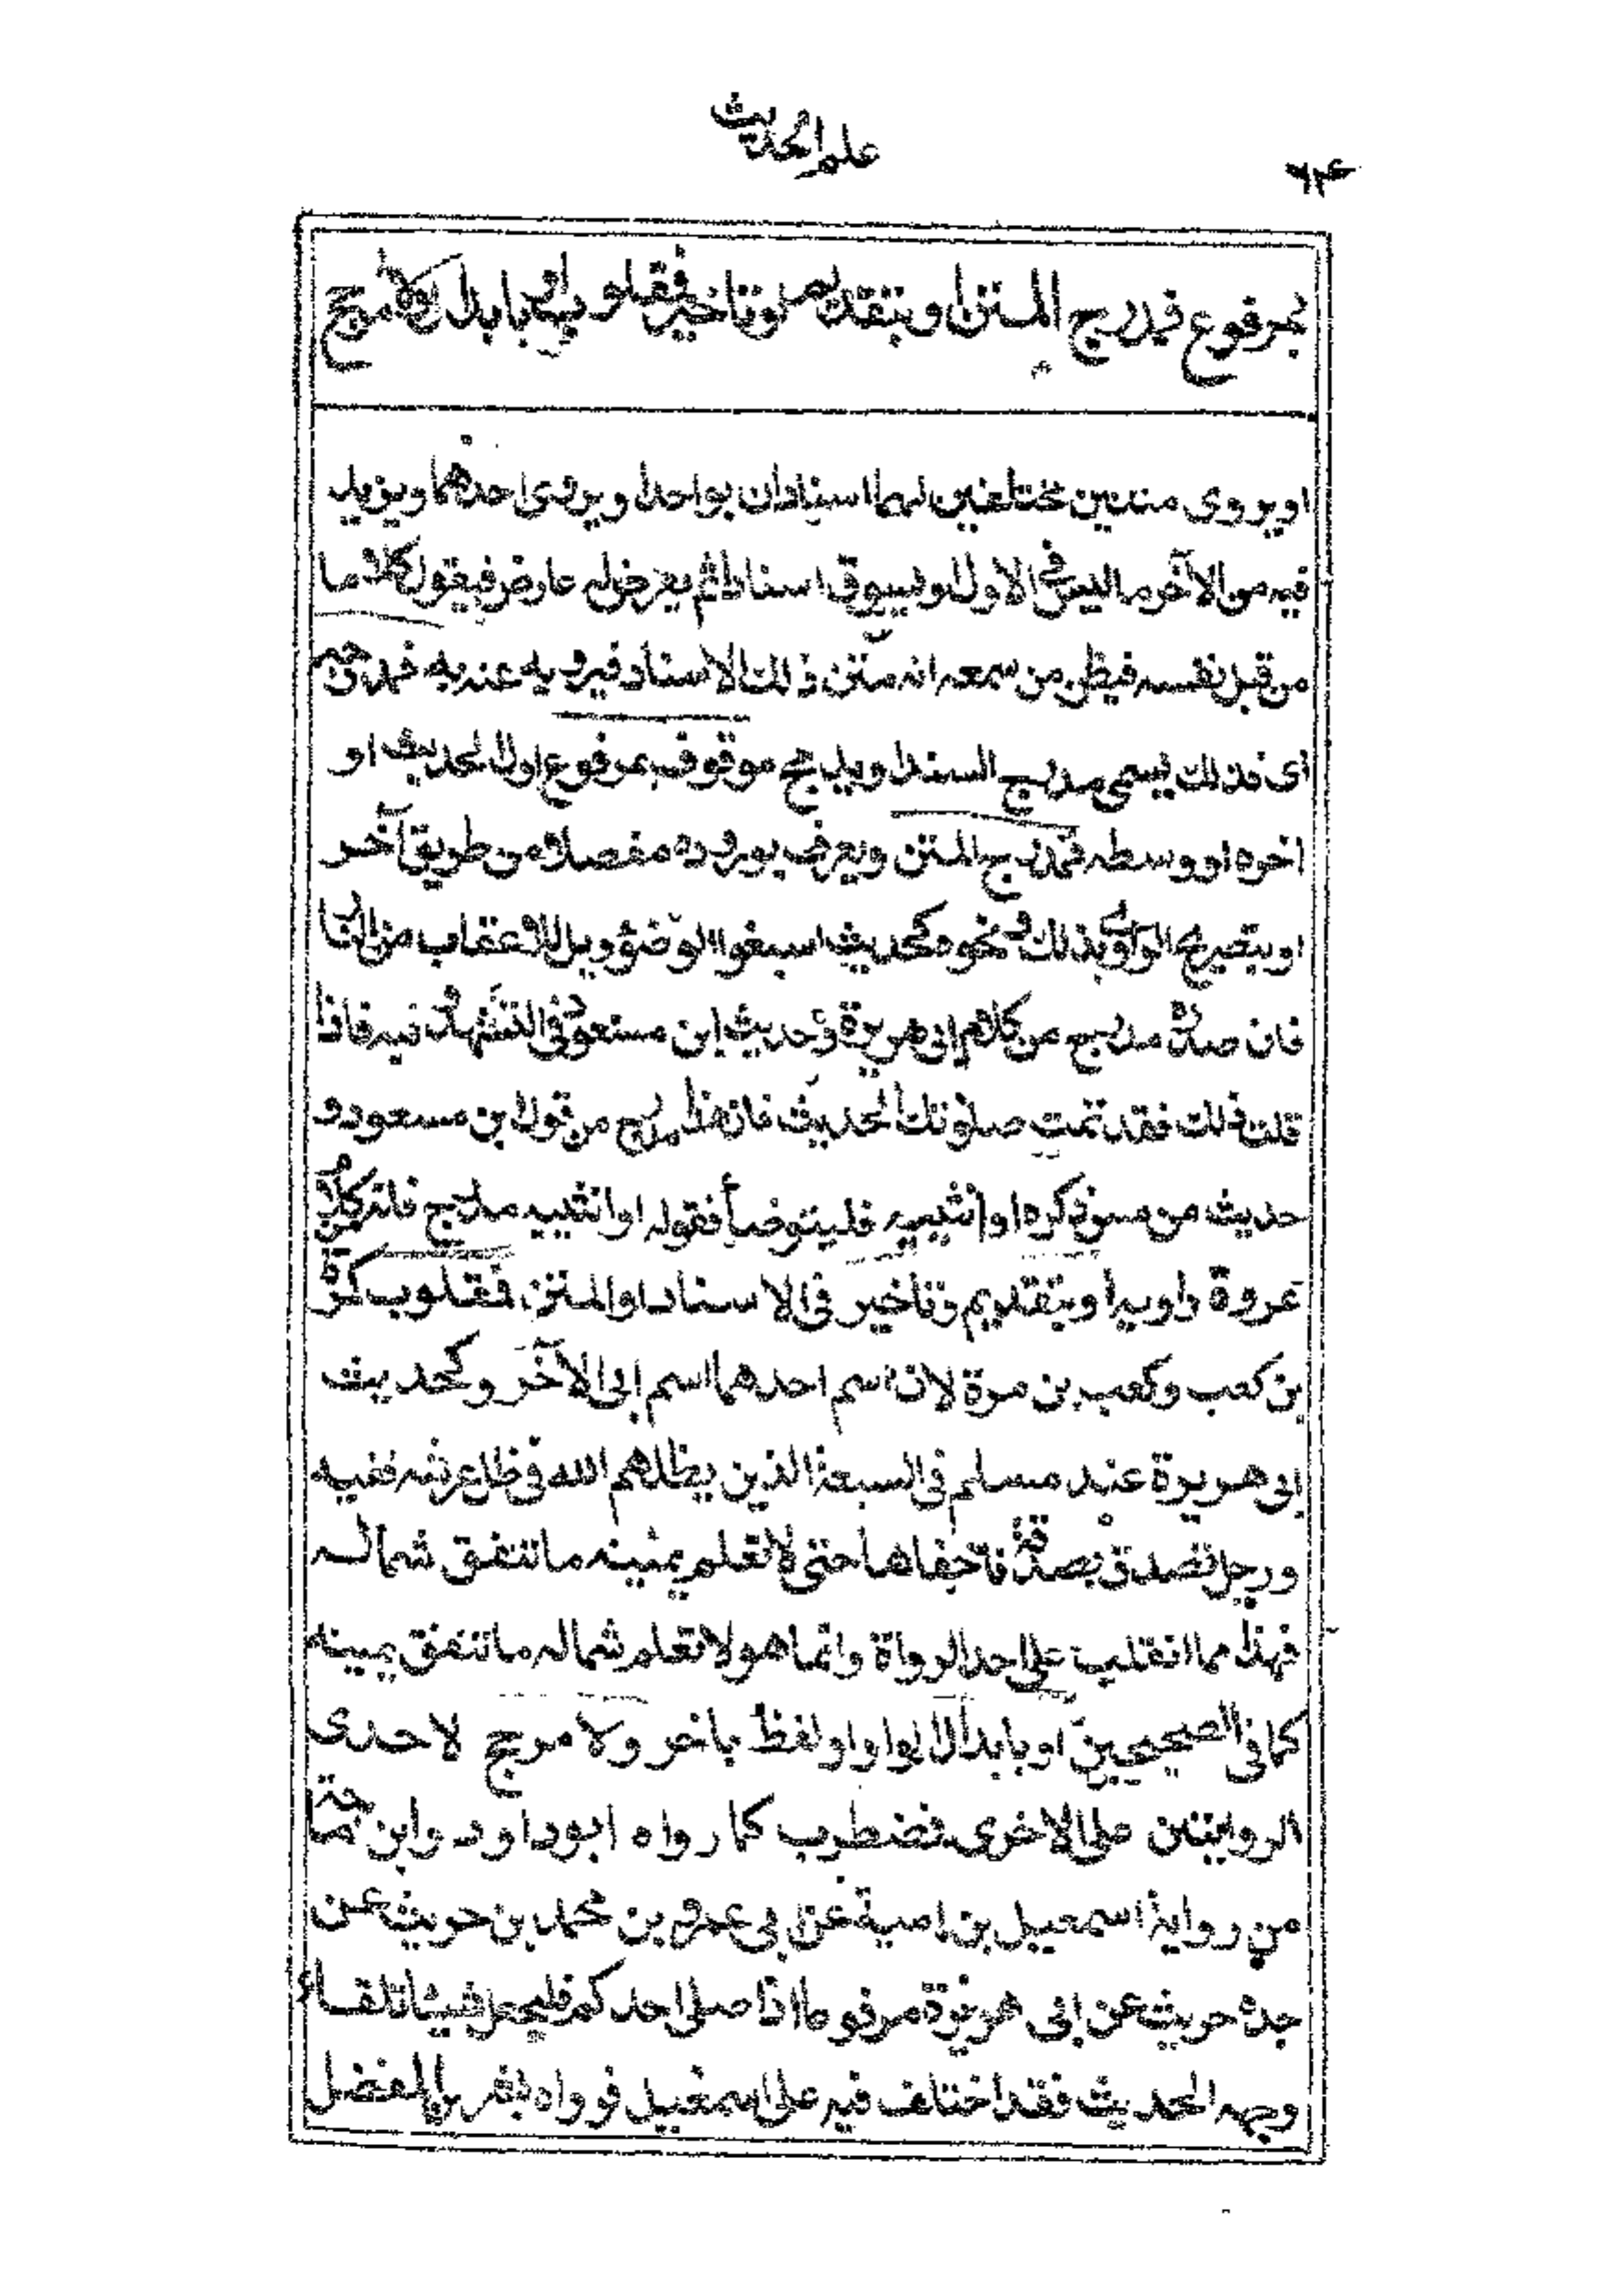 علم الحديث
٦٤
بمرفوع فمدرج المتن او بتقديم وتاخير فمقلوب او بابدال ولا مرجح
او يروى متنين مختلفين لهما اسنادان بواحد او يروى احدهما ويزيد
فيه من الآخر ما ليس فى الاول او يسوق اسنادا ثم يعرض له عارض فيقول كلاما
من قبل نفسه فيظن من سمعه انه متن ذلك الاسناد فيرويه عنه به
اى فذلك يسمى مدرج السند او يدمج موقوف بمرفوع اول الحديث او
اخره او وسطه فمدرج المتن ويعرف بوروده مفصلا من طريق آخر
او بتصريح الراوى بذلك ونحوه كحديث اسبغوا الوضؤ ويل للاعقاب من النار
فان صدره مدرج من كلام ابى هريرة وحديث ابن مسعود فى التشهد وفيه فاذا
قلت ذلك فقد تمت صلوتك الحديث فان هذا مدرج من قول ابن مسعود و
حديث من مس ذكره او انثييه فليتوضأ فقوله او انثييه مدرج فانه من كلام
عروة راويه او بتقديم وتاخير فى الاسناد او المتن فمقلوب كمرة
بن كعب وكعب بن مرة لان اسم احدهما اسم ابى الآخر وكحديث
ابى هريرة عند مسلم فى السبعة الذين يظلهم الله فى ظل عرشه ففيه
ورجل تصدق بصدقة فاخفاها حتى لا تعلم يمينه ما تنفق شماله
فهذا مما انقلب على احد الرواة وانما هو لا تعلم شماله ما تنفق يمينه
كما فى الصحيحين او بابدال لراو او لفظ باخر ولا مرجح لاحدى
الروايتين على الاخرى فمضطرب كما رواه ابو داود وابن ماجة
من رواية اسمعيل بن امية عن ابى عمرو بن محمد بن حريث عن
جده حريث عن ابى هريرة مرفوعا اذا صلى احدكم فليجعل شيئا تلقاء
وجهه الحديث فقد اختلف فيه على اسمعيل فرواه بشر بن المفضل